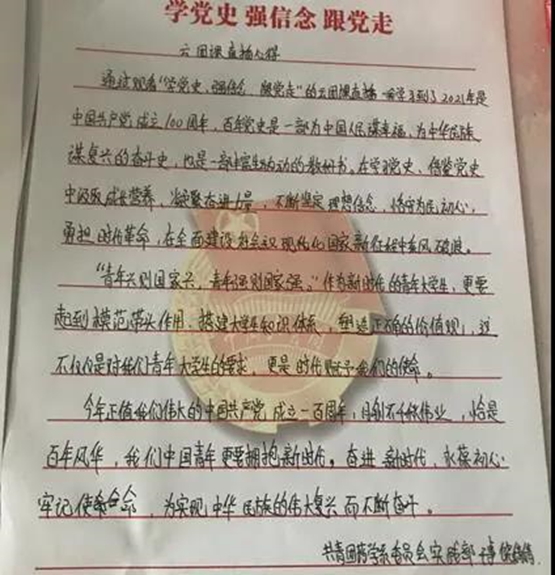 学党史 强信念 跟党走
云团课直播心得
通过观看“学党史、强信念、跟党走”的云团课直播 学习到了2021年是
中国共产党成立100周年，百年党史是一部为中国人民谋幸福，为中华民族
谋复兴的奋斗史，也是一部丰富生动的教科书，在学习党史、借鉴党史
中汲取成长营养，凝聚奋进力量，不断坚定理想信念，恪守为民初心，
勇担时代革命，在全面建设社会主义现代化国家新征程中乘风破浪。
“青年兴则国家兴，青年强则国家强。”作为新时代的青年大学生，更要
起到模范带头作用、搭建大学生知识体系，塑造正确的价值观，这
不仅仅是对我们青年大学生的要求，更是时代赋予我们的使命。
今年正值我们伟大的中国共产党成立一百周年，百年千秋伟业，恰是
百年风华，我们中国青年更要拥抱新时代。奋进新时代，永葆初心
牢记使命，为实现中华民族的伟大复兴而不断奋斗。
共青团药学系委员会实践部干事